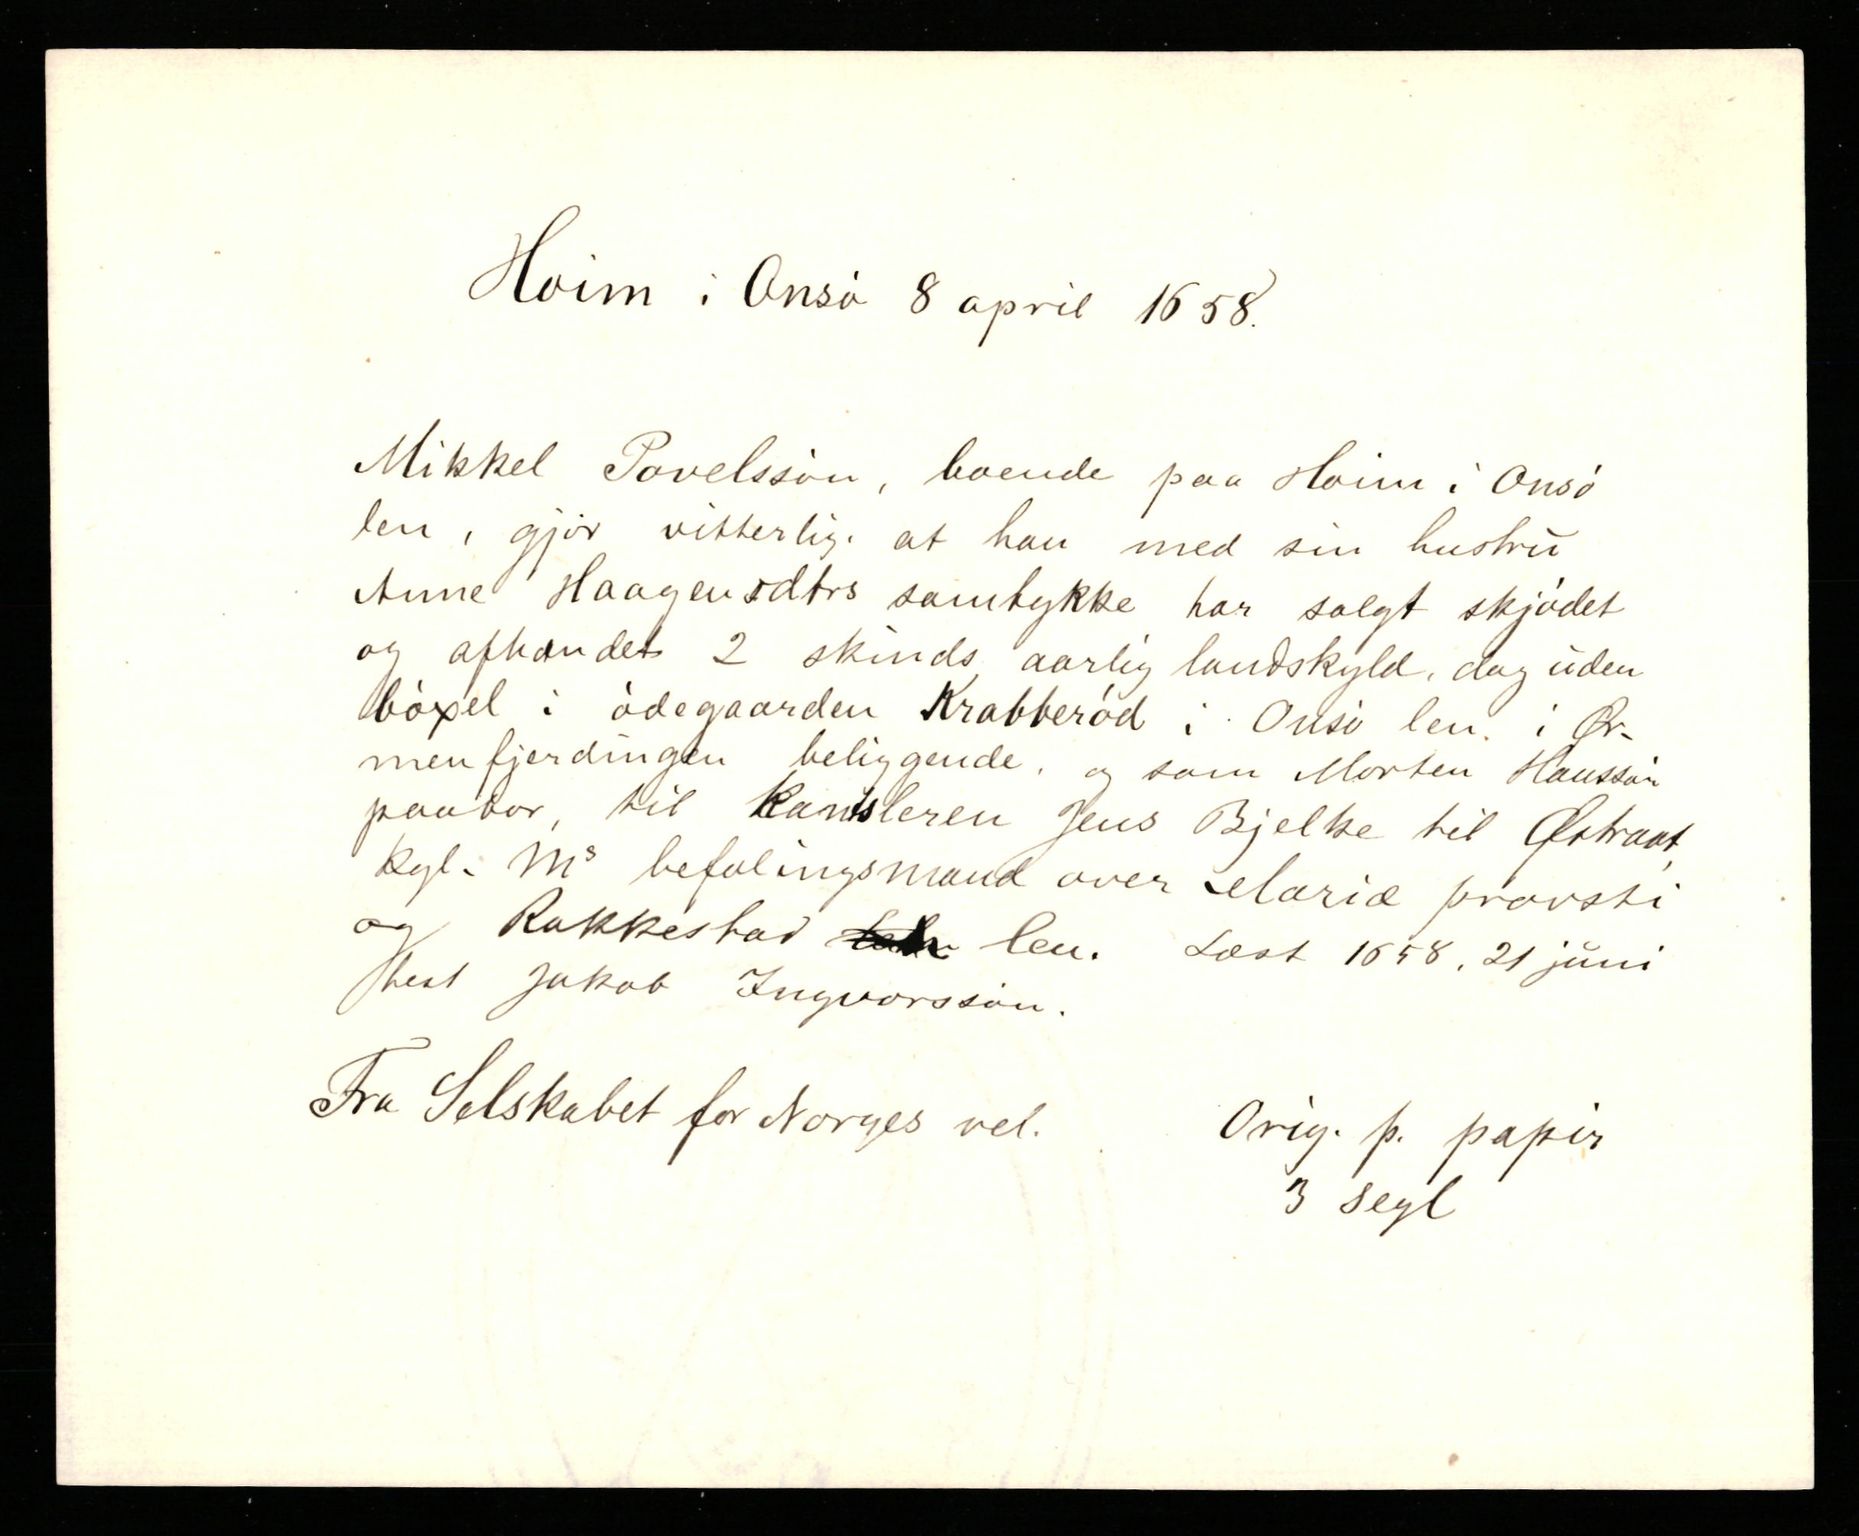 Hoim i Onsö 8 april 1658.
Mikkel Povelssön, boende paa Hoim i Onsö
len, gjör vitterlig. at han med sin hustru
Anne Haagensdtrs samtykke har solgt skjödet
og afhændet 2 skinds aarlig landskyld, dog uden
böxel i ödegaarden Krabberöd i Onsö len. i Ør-
menfjerdingen beliggende, og som Morten Hanssön
paabor, til kansleren Jens Bjelke til Østraat,
kgl. Ms befalingsmand over Mariæ provsti
og Rakkestad len. Læst 1658, 21 juni
test Jakob Ingvorssön.
Fra Selskabet for Norges vel.
Orig. p. papir
3 segl